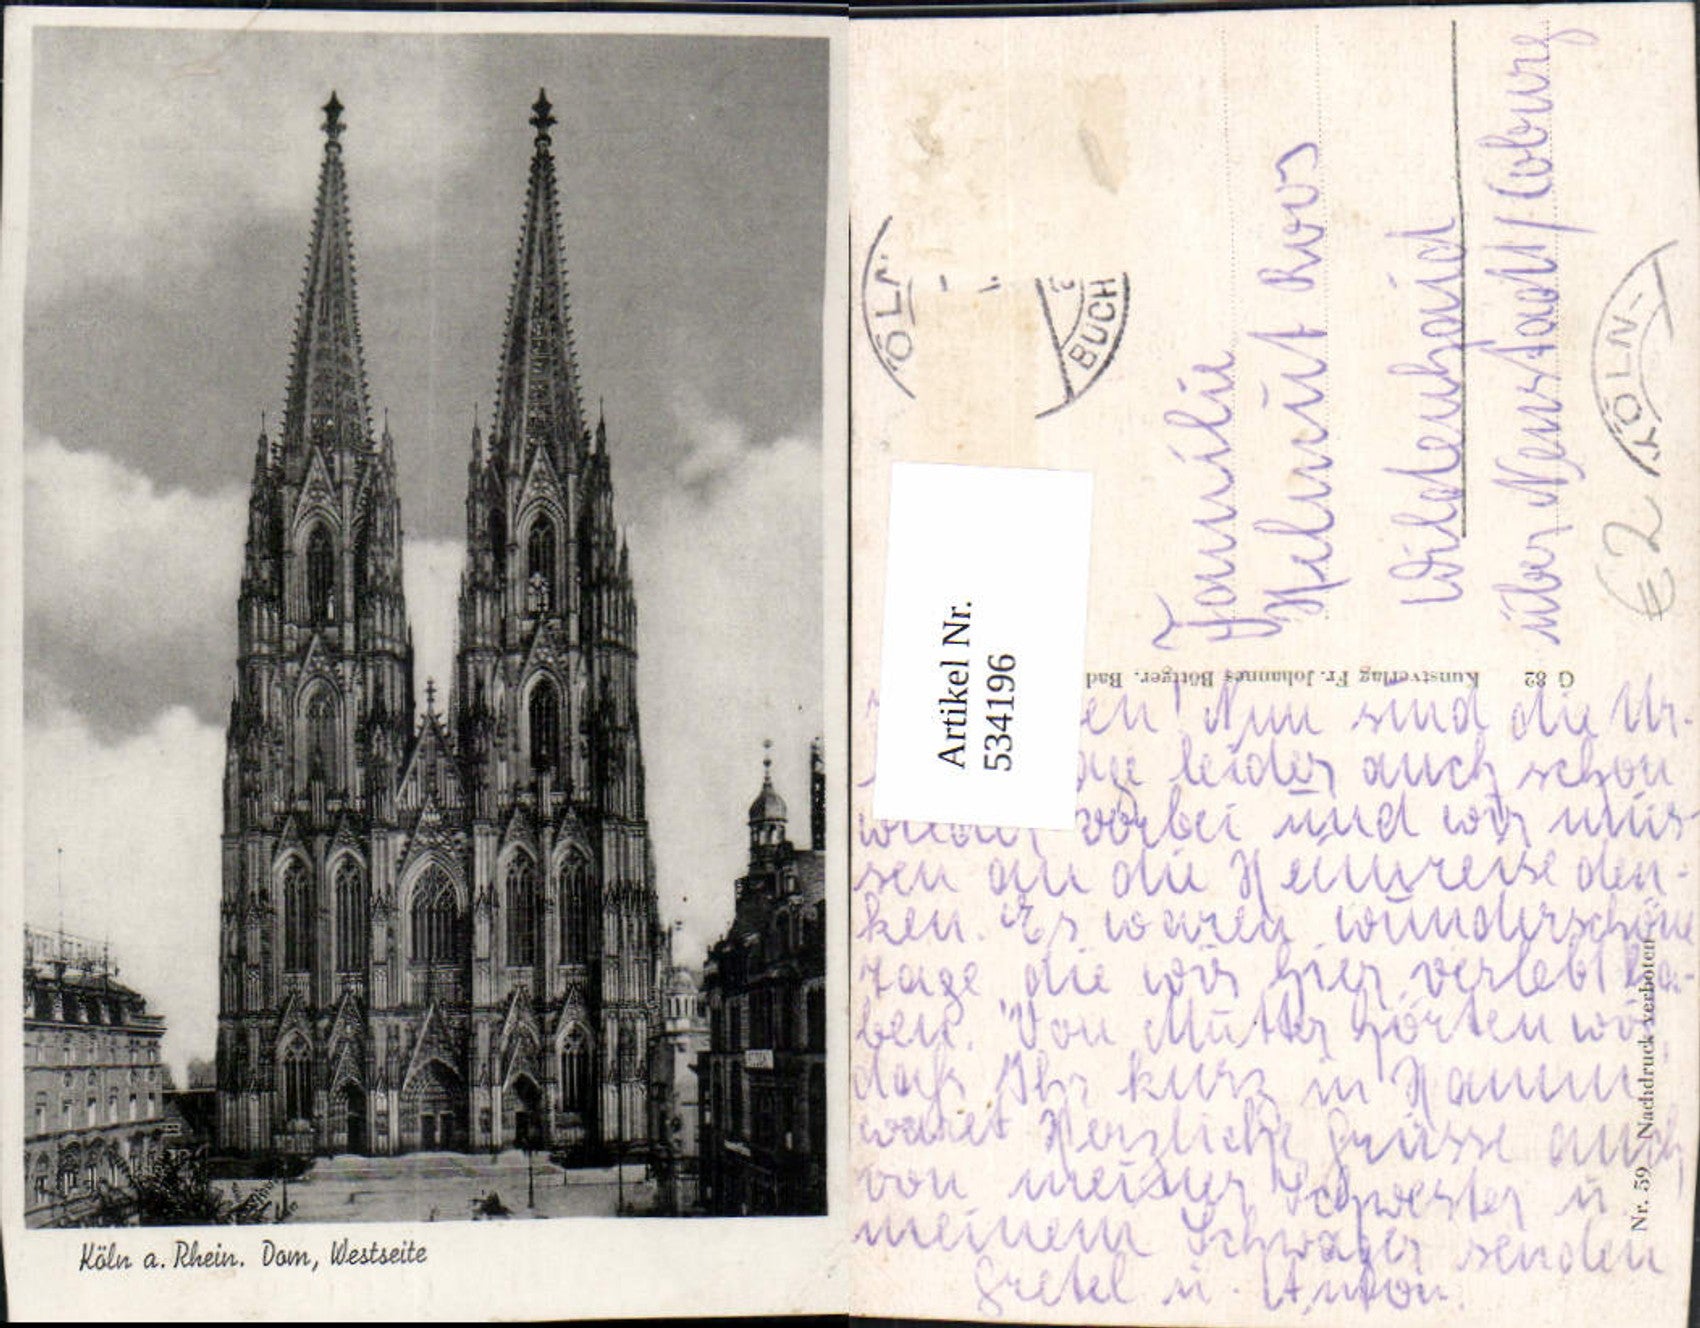 Köln a. Rhein. Dom, Westseite
KÖLN
BUCH
Artikel Nr.
534196
Familie
Helmut Roos
Wildenheid
über Neustadt/Coburg
KÖLN-
€ 2
G 82 Kunstverlag Fr. Johannes Böttger. Bad
Nr. 59 Nachdruck verboten
en! Nun sind die Ur-
leider auch schon
wieder vorbei und wir müs-
sen an die Heimreise den-
ken. Es waren wunderschöne
Tage die wir hier verlebt ha-
ben. Von Mutter hörten wir
daß Ihr kurz in Hamm
waret Herzliche Grüsse auch
von meiner Schwester u.
meinem Schwager senden
Gretel u. Anton.